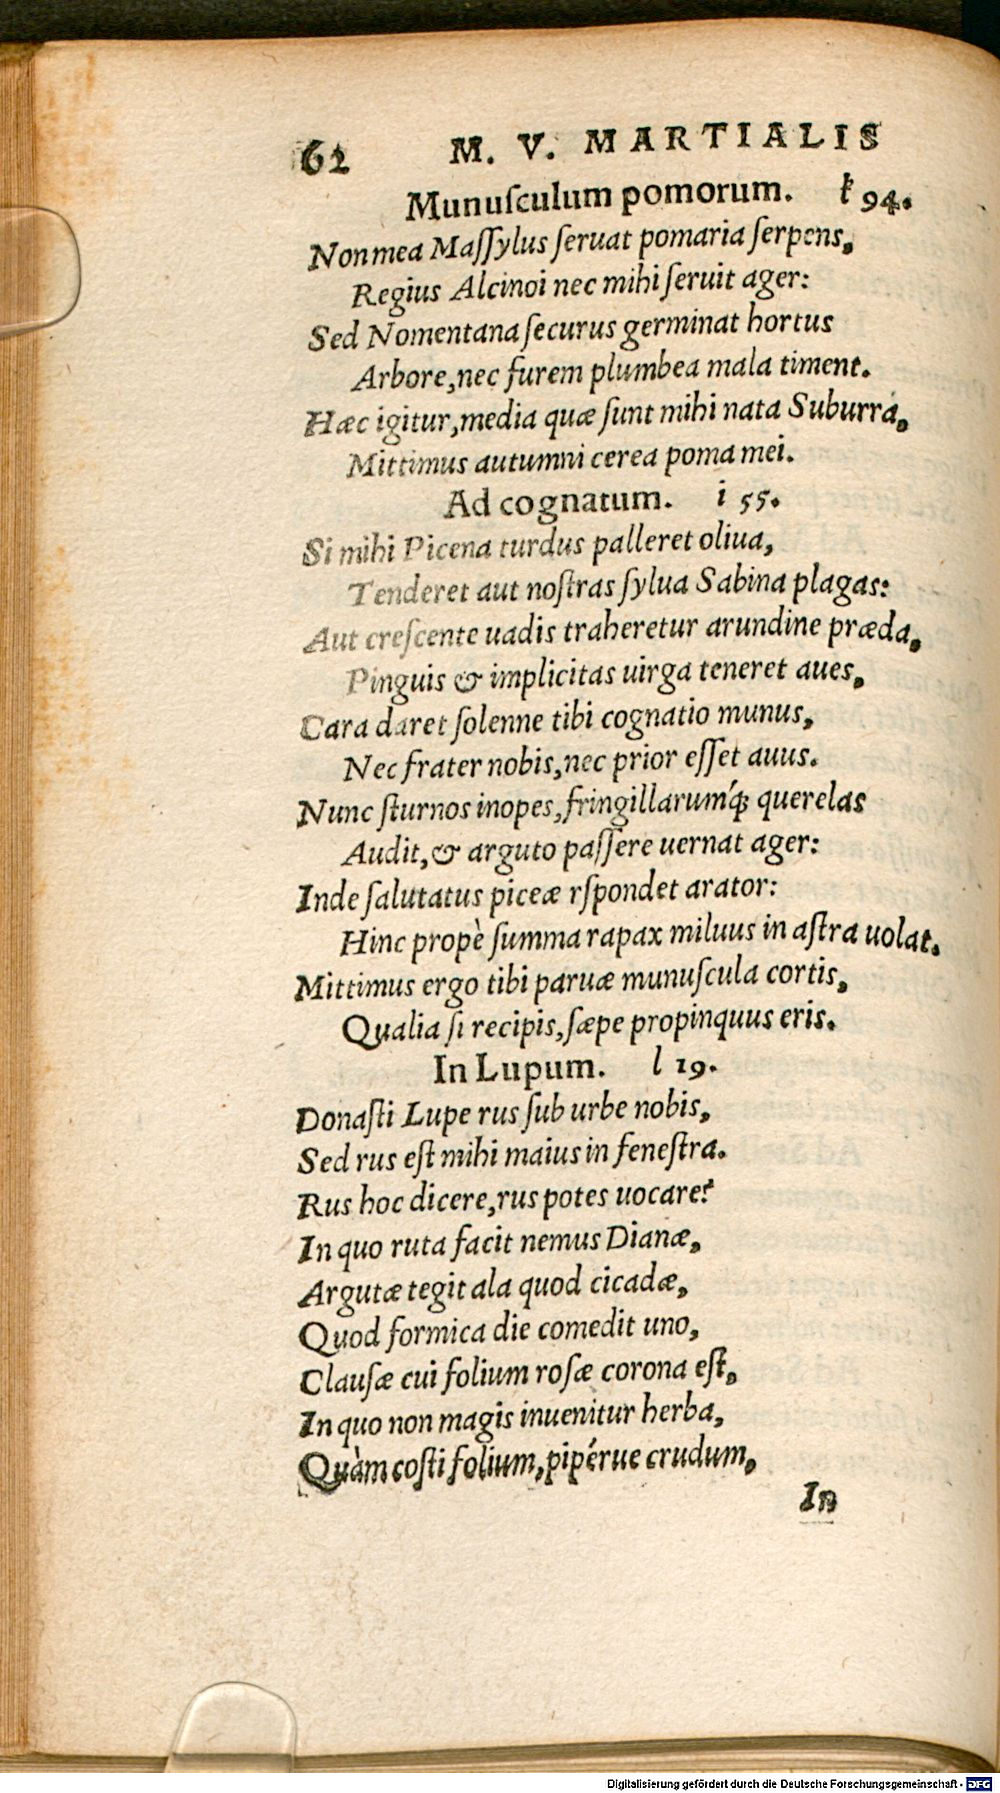 62 M. V. MARTIALIS
Munuſculum pomorum. k 94.
Non mea Maſſylus ſeruat pomaria ſerpens,
Regius Alcinoi nec mihi ſeruit ager:
Sed Nomentana ſecurus germinat hortus
Arbore, nec furem plumbea mala timent.
Hæc igitur, media quæ ſunt mihi nata Suburra,
Mittimus autumni cerea poma mei.
Ad cognatum. i 55.
Si mihi Picena turdus palleret oliua,
Tenderet aut noſtras ſylua Sabina plagas:
Aut creſcente uadis traheretur arundine præda,
Pinguis & implicitas uirga teneret aues,
Cara daret ſolenne tibi cognatio munus,
Nec frater nobis, nec prior eſſet auus.
Nunc ſturnos inopes, fringillarumq́; querelas
Audit, & arguto paſſere uernat ager:
Inde ſalutatus piceæ rſpondet arator:
Hinc propè ſumma rapax miluus in aſtra uolat.
Mittimus ergo tibi paruæ munuſcula cortis,
Qualia ſi recipis, ſæpe propinquus eris.
In Lupum. l 19.
Donaſti Lupe rus ſub urbe nobis,
Sed rus eſt mihi maius in feneſtra.
Rus hoc dicere, rus potes uocare?
In quo ruta facit nemus Dianæ,
Argutæ tegit ala quod cicadæ,
Quod formica die comedit uno,
Clauſæ cui folium roſæ corona eſt,
In quo non magis inuenitur herba,
Quàm coſti folium, pipérue crudum,
In
Digitalisierung gefördert durch die Deutsche Forschungsgemeinschaft - DFG